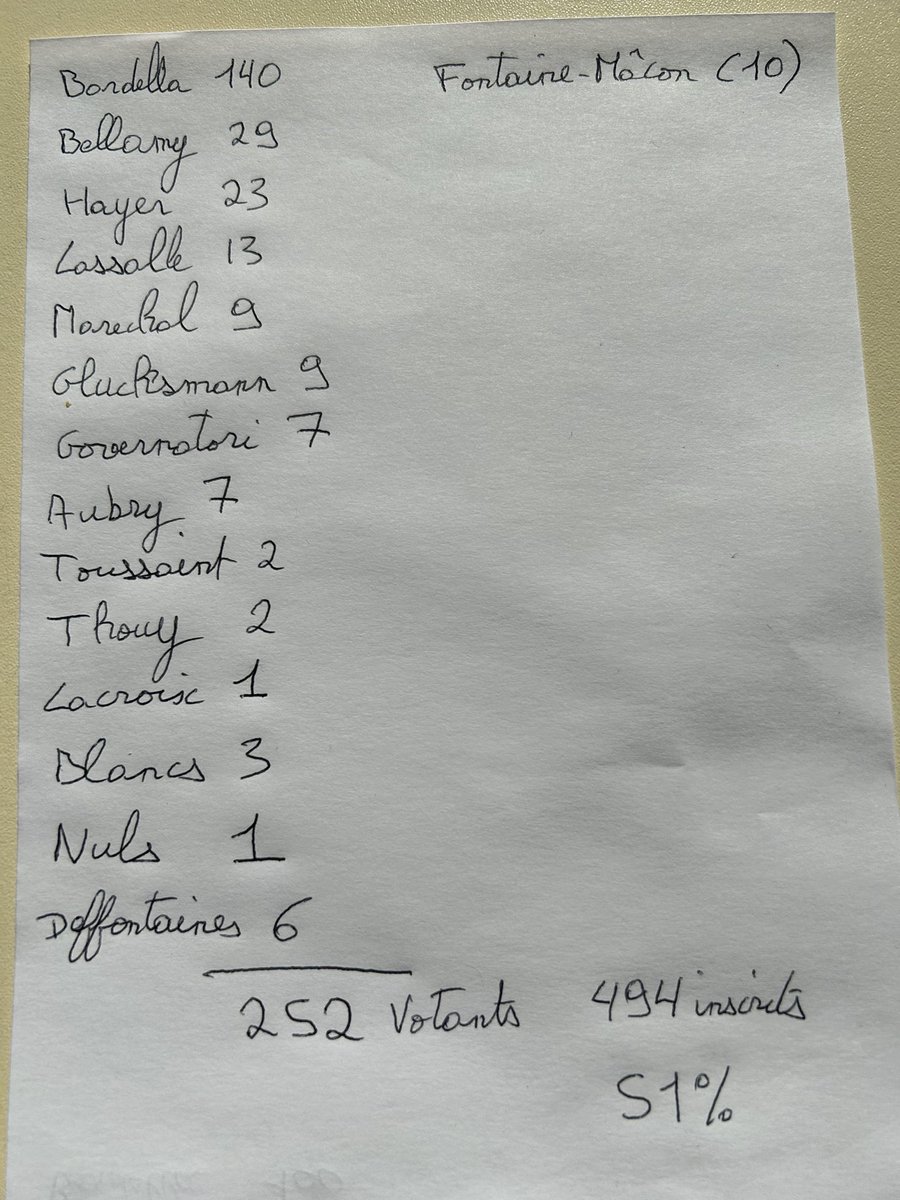 Bardella 140 Fontaine-Mâcon (10)
Bellamy 29
Hayer 23
Lassalle 13
Marechal 9
Glucksmann 9
Governatori 7
Aubry 7
Toussaint 2
Thouy 2
Lacroix 1
Blancs 3
Nuls 1
Deffontaines 6
252 Votants 494 inscrits
51%